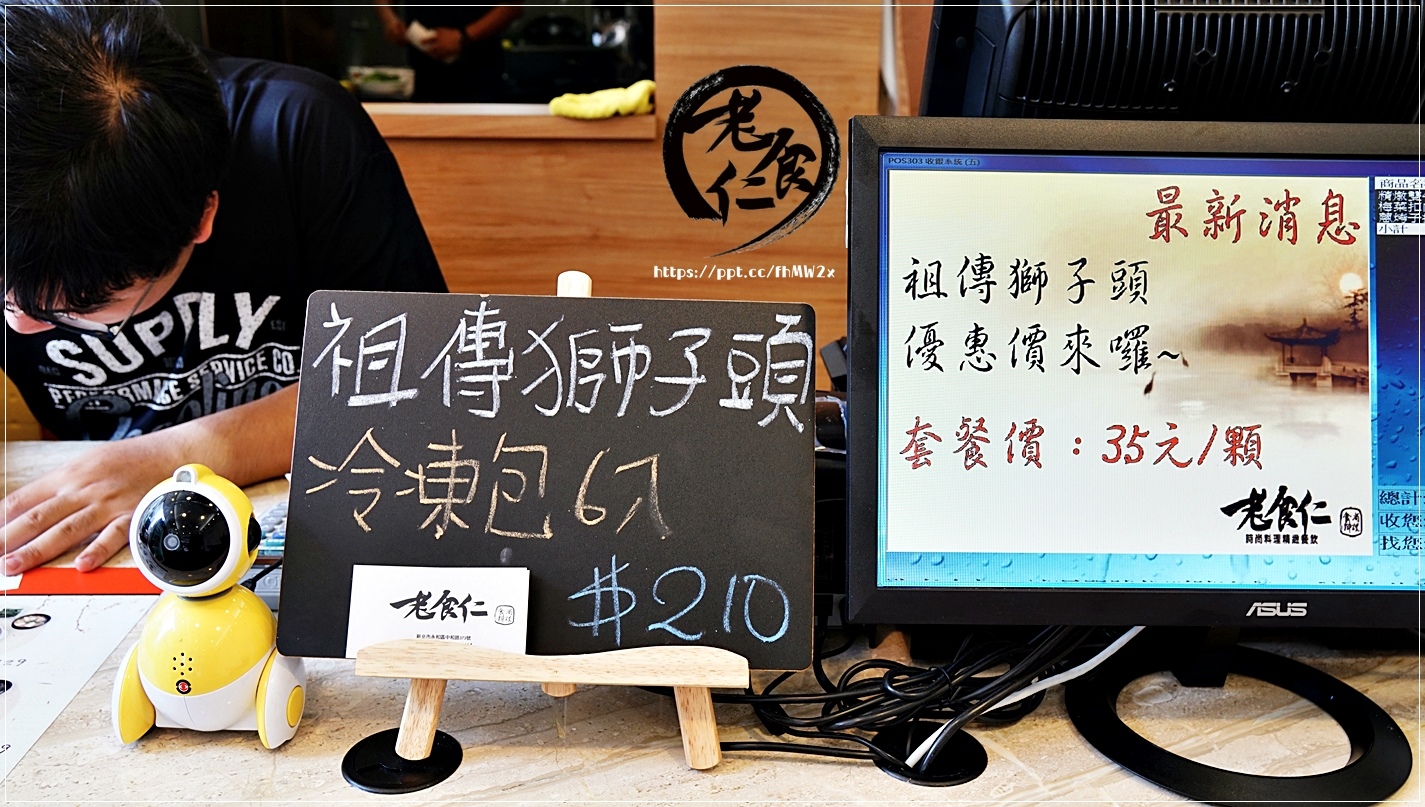 老食仁
https://ppt.cc/fhMW2x
SUPPLY
PERFORMANCE SERVICE CO.
祖傳獅子頭
冷凍包6入
$210
老食仁
POS303 收銀系統 (五)
最新消息
祖傳獅子頭
優惠價來囉~
套餐價:35元/顆
老食仁
時尚料理精緻餐飲
商品名
小計
總計
收您
找您
ASUS